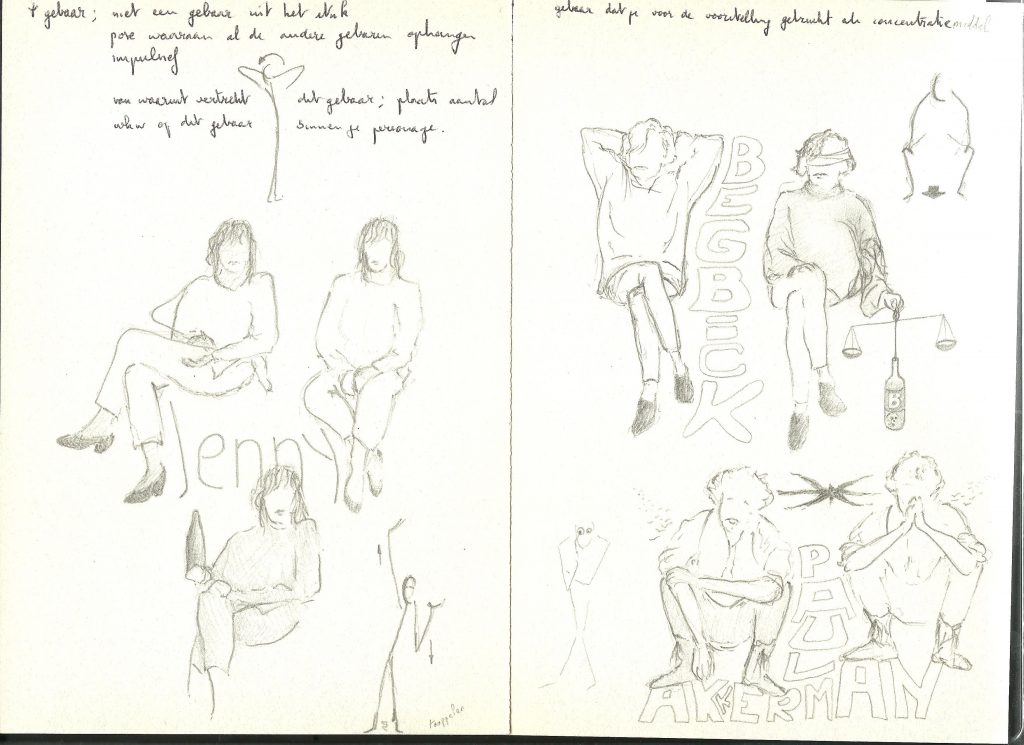 gebaar; niet een gebaar uit het stuk
pose waaraan al de andere gebaren ophangen
impulsief
van waaruit vertrekt dit gebaar; plaats aantal
op dit gebaar binnen je personage.
Jenny
koppelen
gebaar dat je voor de voorstelling gebruikt als concentratiemiddel
BEGBECK
B
PAUL
AKKERMAN